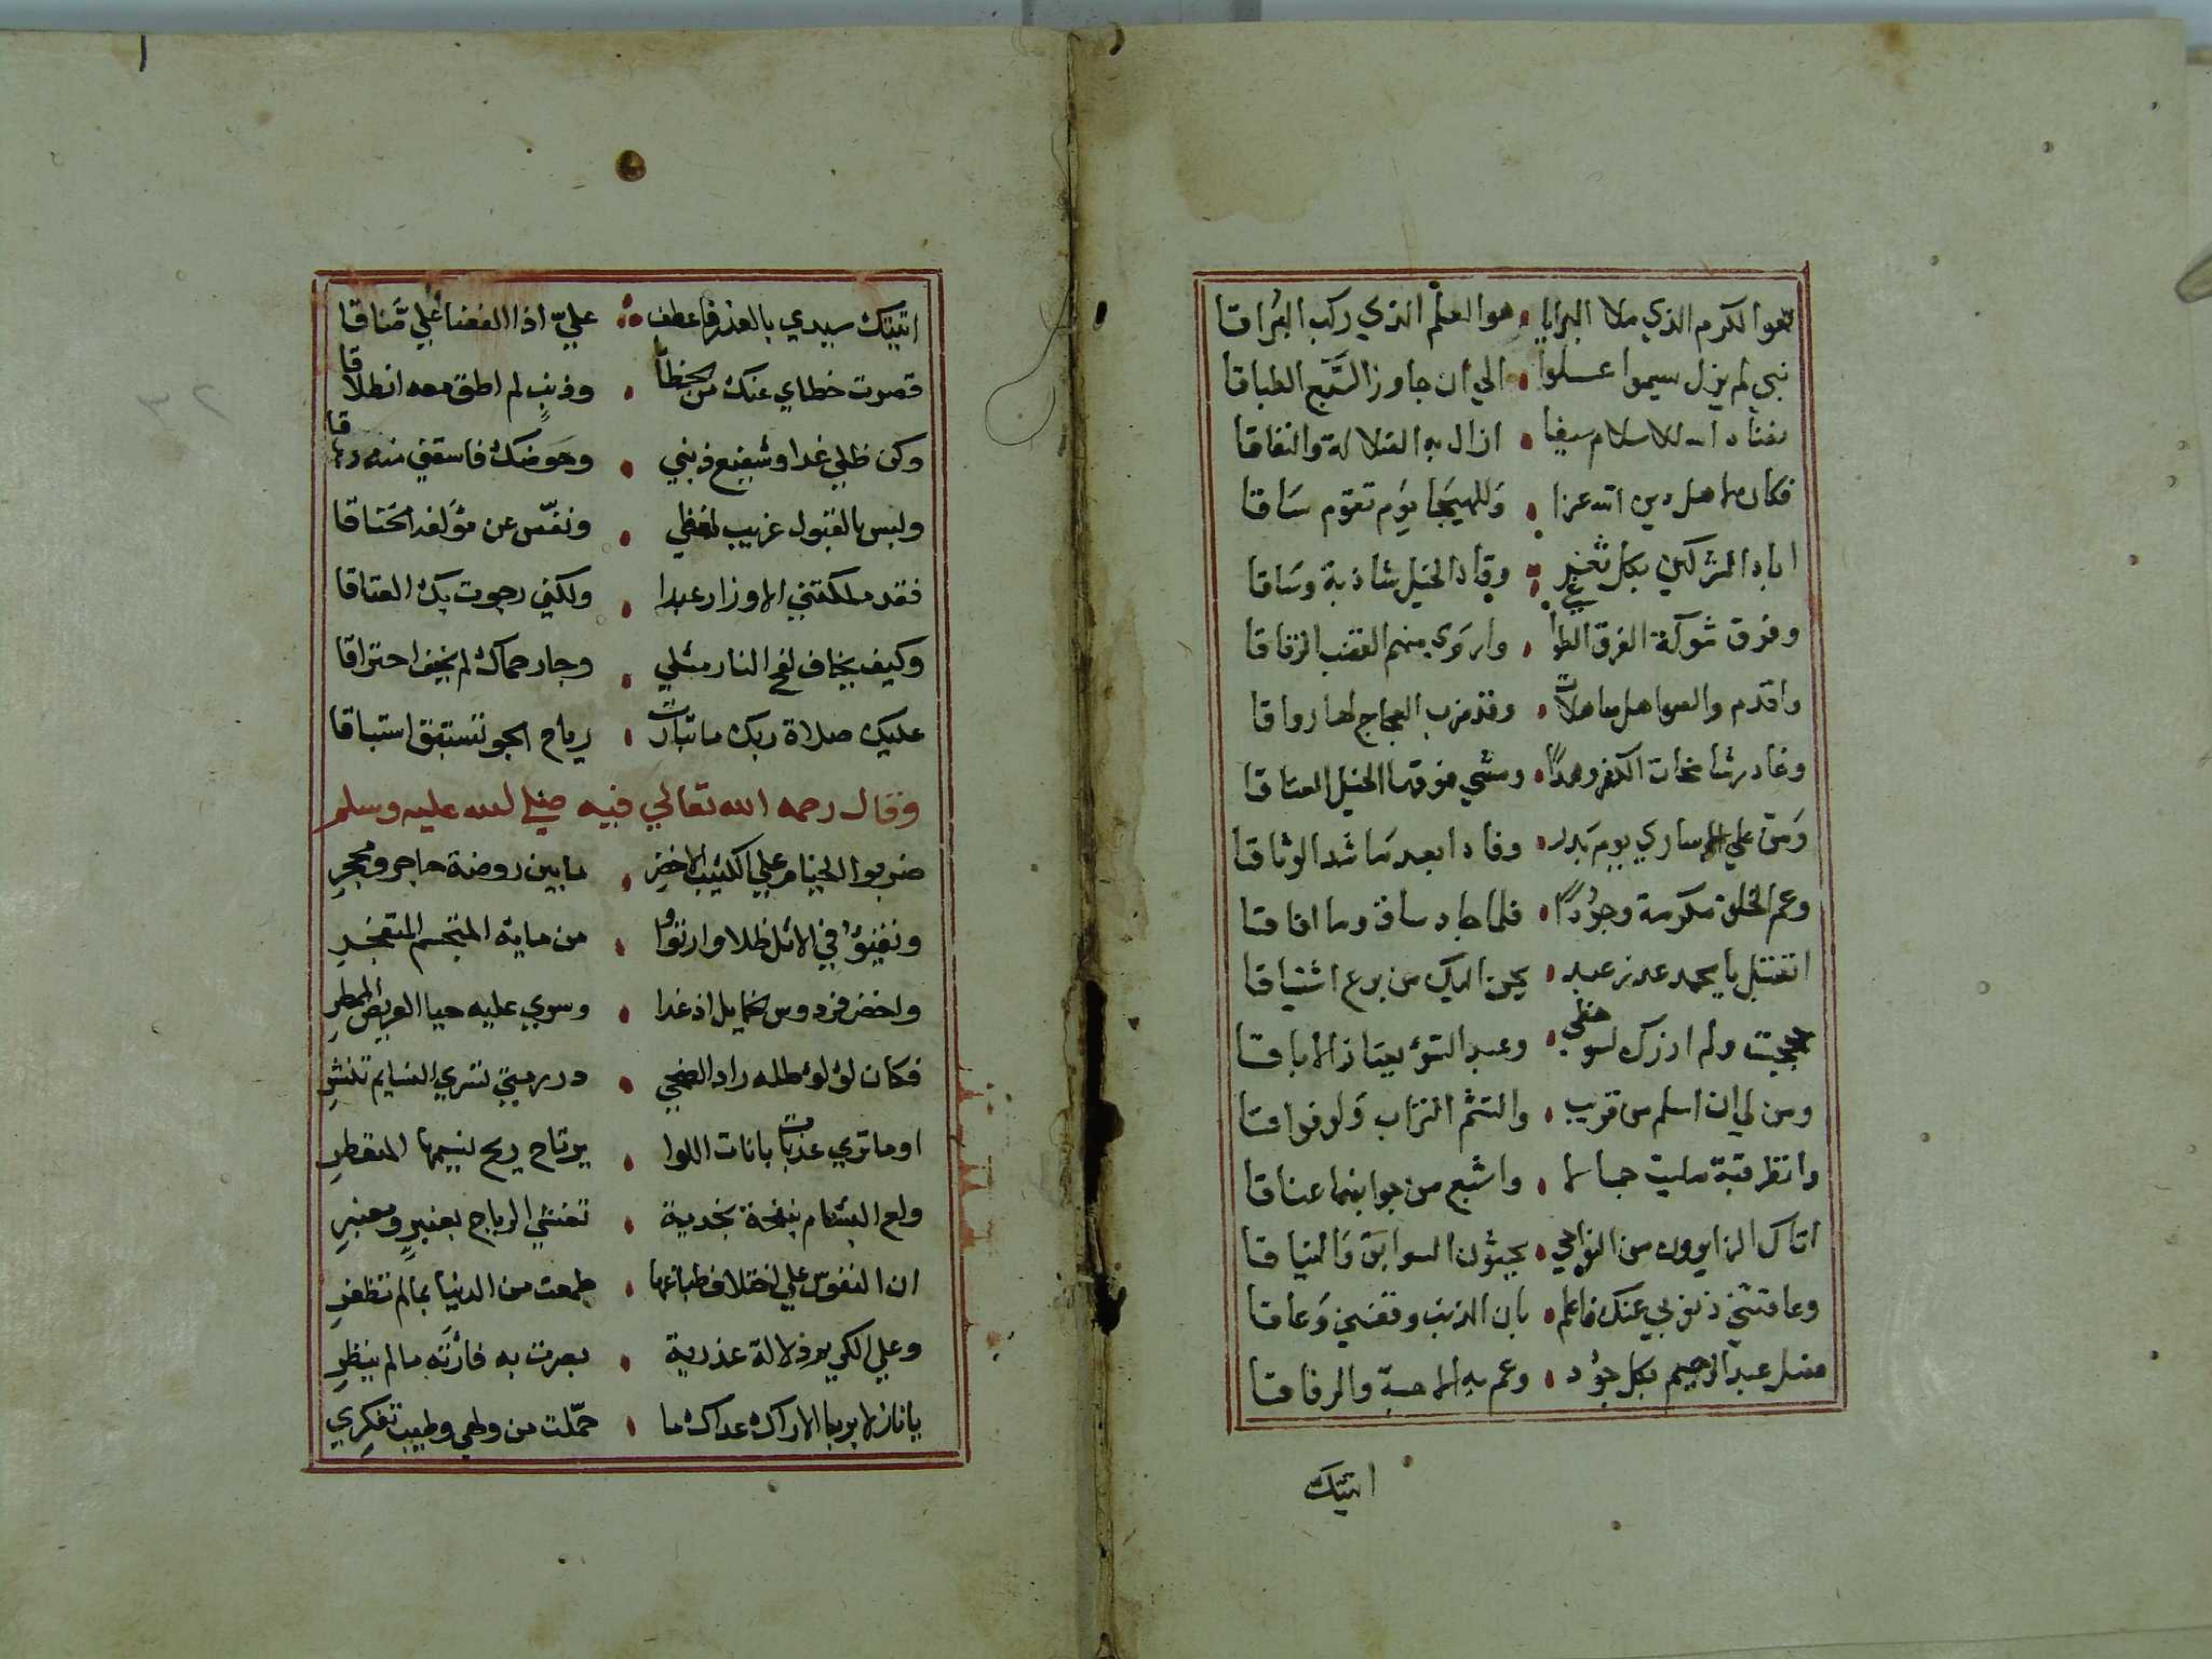 هو الكرم الذي ملا البرايا هو العلم الذي ركب البراقا
نبي لم يزل يسموا علوا الي ان جاوز السبع الطباقا
للاسلام سيفا ازال به الضلالة والنفاقا
فكان لاهل دين الله عزا وللهيجا يوم تقوم ساقا
اباد المشركين بكل ثغر وقاد الخيل شاذبة وساقا
وفرق شوكة الفرق الطواغي واروي منهم القضب الرقاقا
واقدم والصواهل صاهلات وقد ضرب العجاج لها رواقا
وغادر شامخات الكفر وهدا ومشي فوقها الخيل العتاقا
ومن علي الاساري يوم بدر وفادا بعد ما شد الوثاقا
وعم الخلق مكرمة وجودا فلما جاد ساق وما افاقا
اتقبل يا محمد عذر عبد يحن اليك من برع اشتياقا
حججت ولم ازرك لسو حظي وعبد السؤ يعتاد الاباقا
ومن لي ان اسلم من قريب والتثم التراب ولو فواقا
وانظر قبة مليت جمالا واشبع من جوانبها عناقا
اتاك الزايرون من النواحي يحثون السوابق والنياقا
وعاقتني ذنوبي عنك فاعلم بان الذنب وقفني وعاقا
فصل عبد الرحيم بكل جود وعم به الاحبة والرفاقا
اتيتك
اتيتك سيدي بالعذر فاعطف علي اذا الفضا علي ضاقا
قصرت خطاي عنك من الخطا وذنب لم اطق معه انطلاقا
وكن ظلي غدا وشفيع ذنبي وحوضك فاسقني منه دهاقا
ولبس بالقبول غريب لفظي ونفس عن مؤلفه الخناقا
فقد ملكتني الاوزار عبدا ولكني رجوت بك العتاقا
وكيف يخاف لفح النار مثلي وجار حماك لم يخف احتراقا
عليك صلاة ربك ما تبارت رياح الجو تستبق استباقا
وقال رحمه الله تعالي فيه صلي الله عليه وسلم
ضربوا الخيام علي الكثيب الاخضر ما بين روضة حاجر ومحجر
وتفيؤا في الاثل ظلا وارتووا من مايه المتجسم المتفجر
واخضر فردوس الخمايل اذ غدا وسري عليه حيا العريض الممطر
فكان لؤلؤ طله راد الضحي درر بهيتن تسري النسايم تنشر
او ما تري عذبات بانات اللوا يرتاح ريح نسيمها المتقطر
ولع البشام بنفحة نجدية تغشي الرباح بعنبر ومعنبر
ان النفوس علي اختلاف طباعها طمعت من الدنيا بما لم تظفر
وعلي الكريم دلالة عذرية بصرت به فارته ما لم ينظر
يا نازلا بربا الاراك عداك ما حملت من ولهي وطيب تفكري